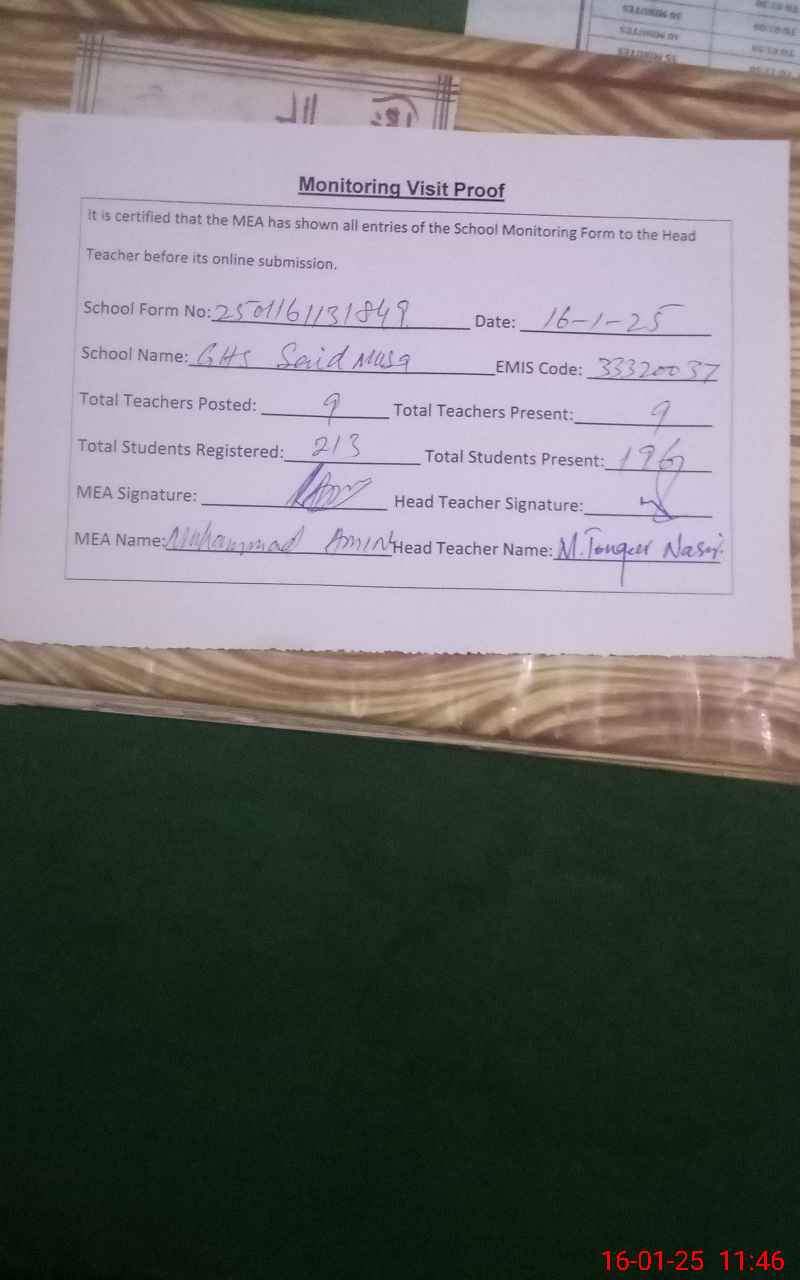 35 MINUTES
40 MINUTES
Monitoring Visit Proof
It is certified that the MEA has shown all entries of the School Monitoring Form to the Head
Teacher before its online submission.
School Form No: 2501161131849 Date: 16-1-25
School Name: GHS Said Musa EMIS Code: 33320037
Total Teachers Posted: 9 Total Teachers Present: 9
Total Students Registered: 213 Total Students Present: 196
MEA Signature: Head Teacher Signature:
MEA Name: Muhammad Amin Head Teacher Name: M. Tanqeer Nasir.
16-01-25 11:46